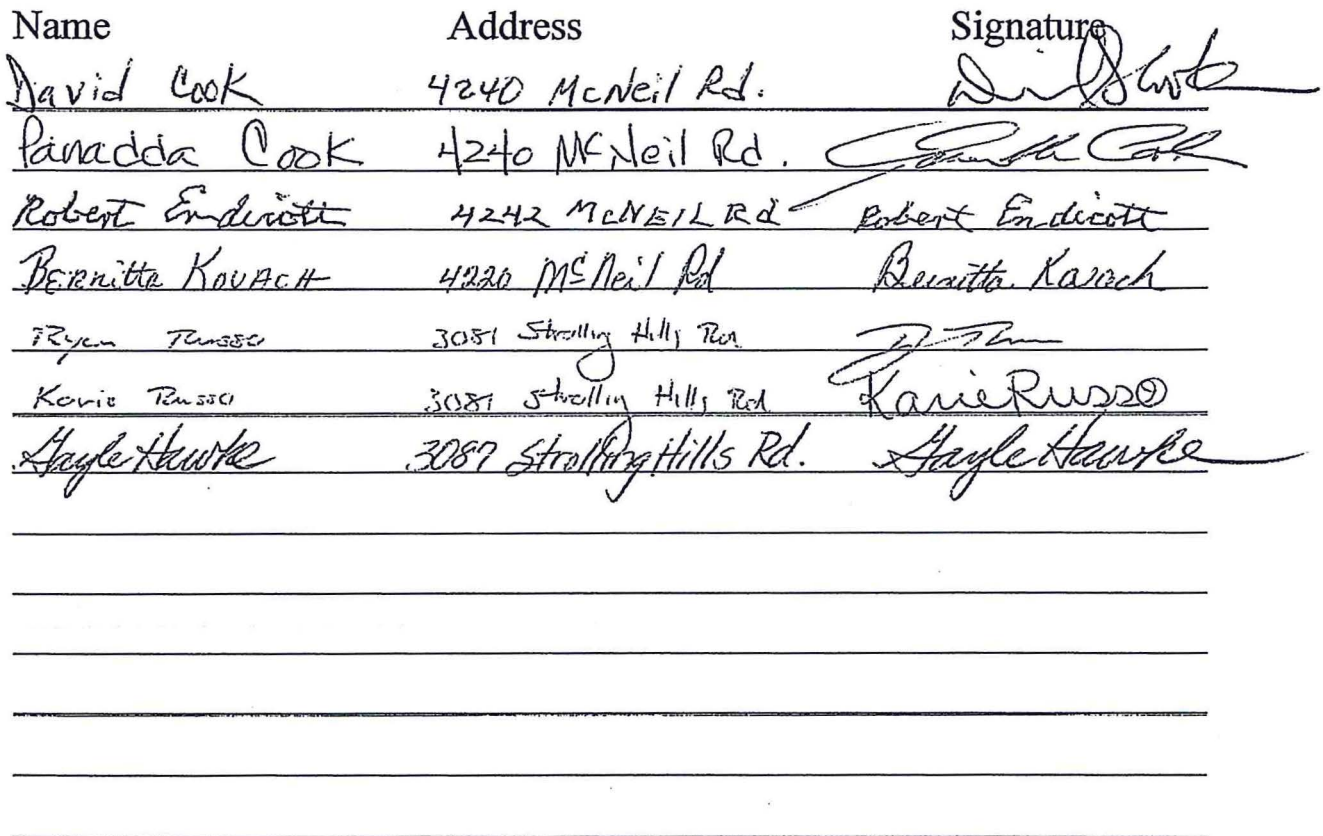 Name Address Signature
David Cook 4240 McNeil Rd.
Panadda Cook 4240 McNeil Rd.
Robert Endicott 4242 McNEIL Rd Robert Endicott
BERNITTA KOVACH 4220 McNeil Rd Bernitta Kovach
Ryan Russo 3081 Strolling Hills Rd
Karie Russo 3081 Strolling Hills Rd Karie Russo
Gayle Hawke 3087 Strolling Hills Rd. Gayle Hawke